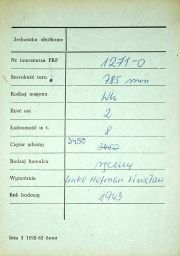 Jednostka służbowa
Nr inwentarza PKP 1271-0
Szerokość toru 785 mm
Rodzaj wagonu Wk
Ilość osi 2
Ładowność w t. 8
Ciężar własny 3450 3450
Rodzaj hamulca ręczny
Wytwórnia Linke Hofman Wrocław
Rok budowy 1943
bzm 3 1192-62 6000